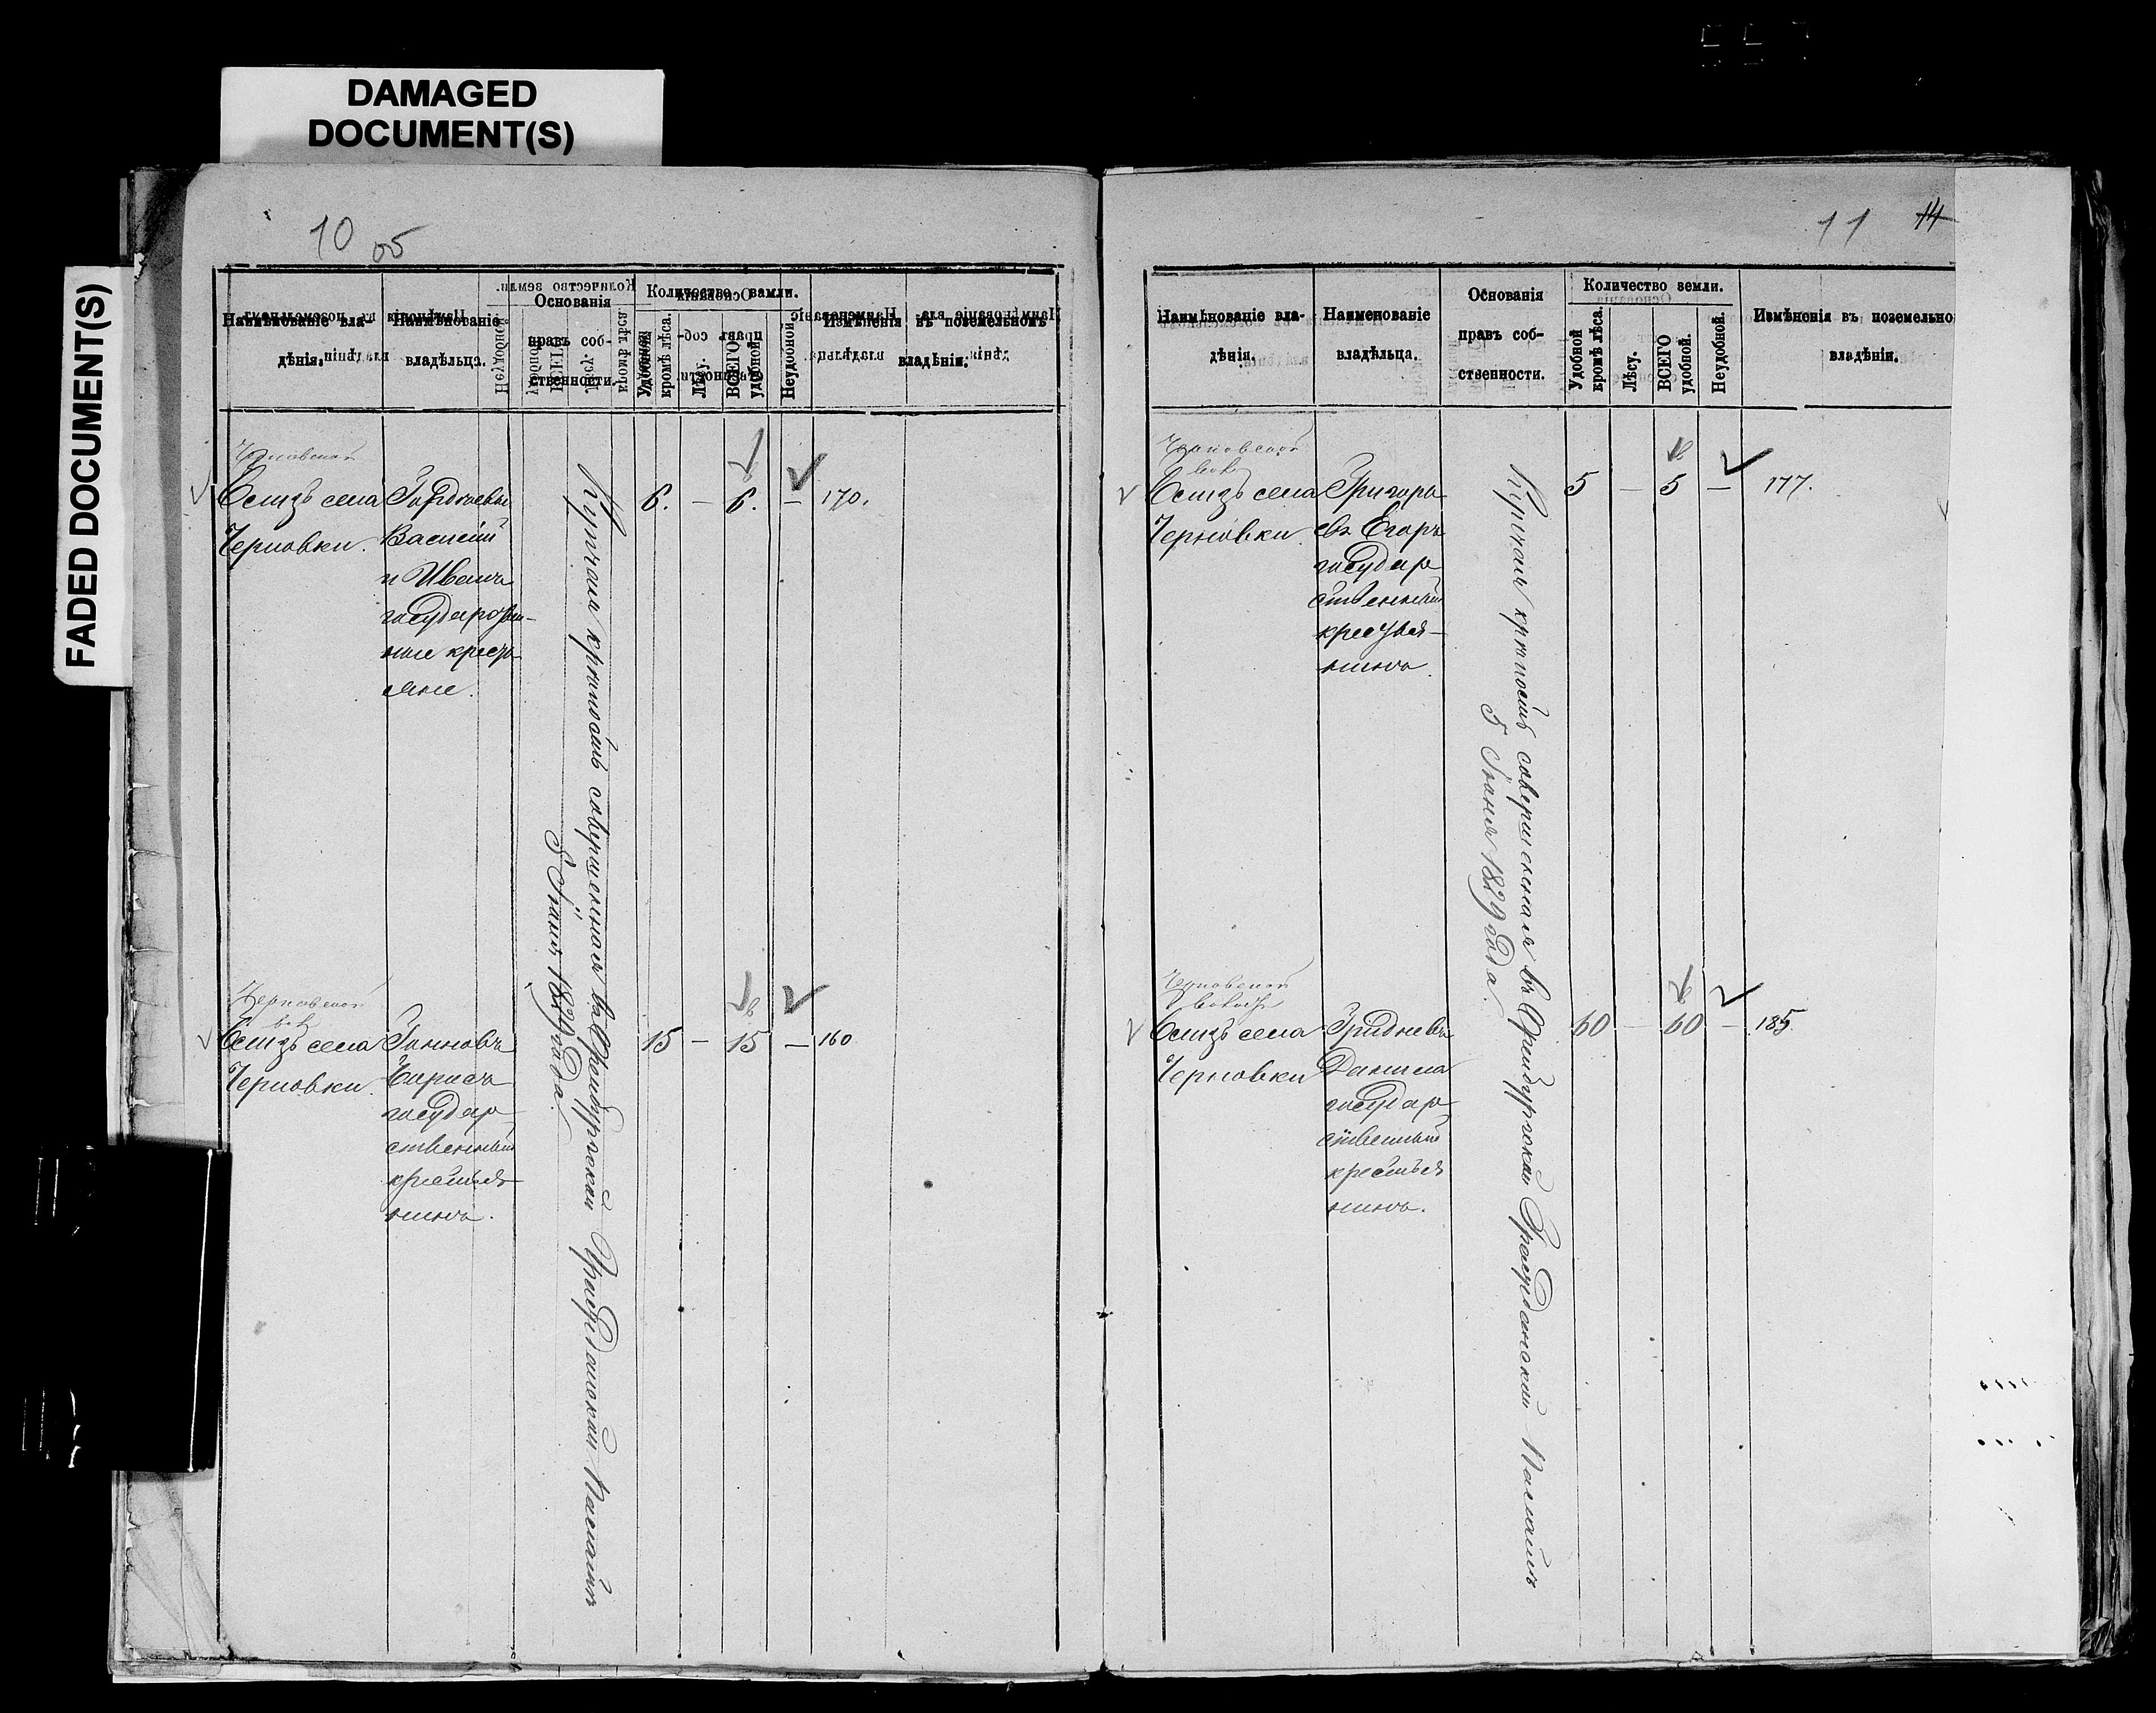 DAMAGED
DOCUMENT(S)
FADED DOCUMENT(S)
10 об
Наимѣнованіе вла-
дѣнія.
Наимѣнованіе
владѣльца.
Основанія
правъ соб-
ственности.
Количество земли.
Удобной
кромѣ лѣса.
Лѣсу.
ВСЕГО
удобной.
Неудобной.
Измѣненія въ поземельномъ
владѣніи.
Черновской
При селѣ
Черновки.
Василій
и Иванъ
государствен-
ные кресть-
яне.
Купчая крѣпость совершенная въ Оренбургской Гражданской Палатѣ
5 Іюня 1829 года.
6. — 6. — 170.
Черновской
вол
села
Черновки.
государ
ственный
крестья
нинъ.
15 — 15 — 160
11 14
Наимѣнованіе вла-
дѣнія.
Наименованіе
владѣльца.
Основанія
правъ соб-
ственности.
Количество земли.
Удобной
кромѣ лѣса.
Лѣсу.
ВСЕГО
удобной.
Неудобной.
Измѣненія въ поземельно
владѣніи.
Черновской
вол
села
Черновки
Григорь
евъ Егоръ
государ
ственный
крестья-
нинъ.
Купчая крѣпость совершенная въ Оренбургской Гражданской Палатѣ
5 Іюня 1829 года.
5 — 5 — 177.
Черновской
волости
села
Черновки
Гридневъ
Данила
государ
ственный
крестья
нинъ.
60 — 60 — 185.